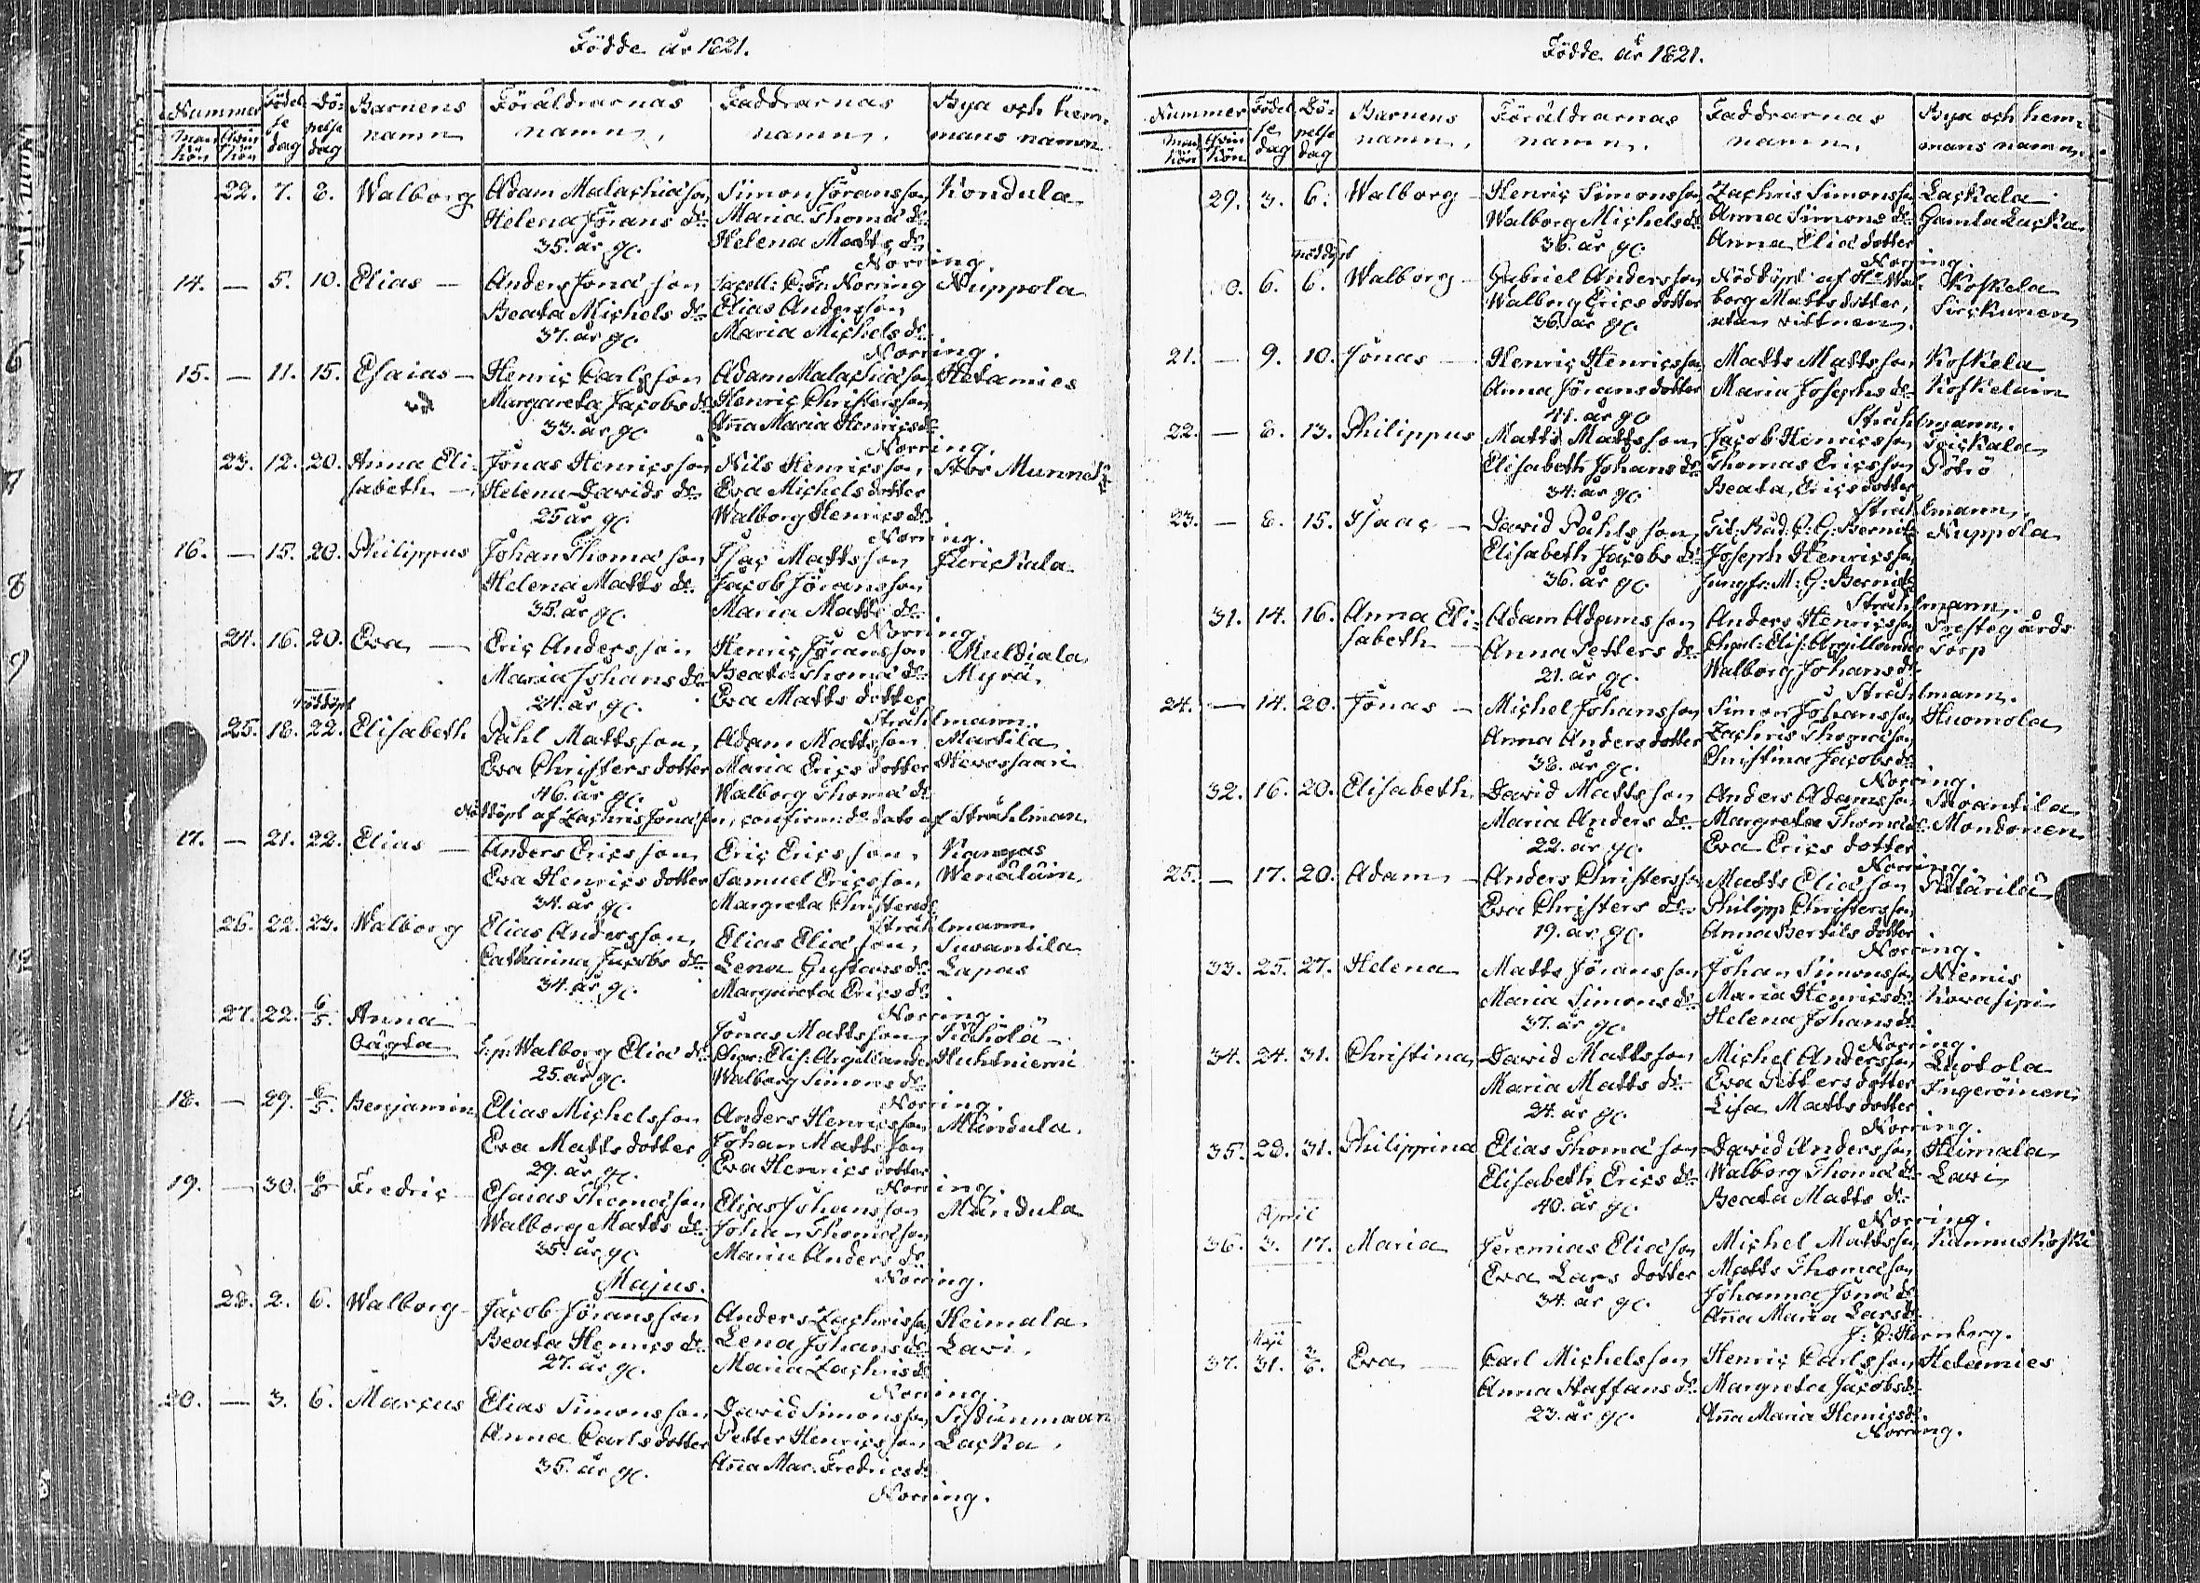 Födde år 1821.
Nummer Födelse dag Döpelse dag Barnens namn Föräldrarnas namn. Faddrarnas namn. Bya och hemmans namn.
Mankön Qvinkön
22. 7. 8. Walborg Adam Malachiæson Simon Jöransson Kondula
Helena Jörans dr. Maria Thomæ dr.
35. år gl. Helena Matts dr.
Norring.
14. — 5. 10. Elias — Anders Jonæ son Norring Nuppola
Beata Michels dr. Elias Andersson
37. år gl. Maria Michels dr.
Norring.
15. — 11. 15. Esaias — Henric Carlsson Adam Malachiæson Hetamies
Margareta Jacobs dr. Henric Christersson
33. år gl. Anna Maria Henricsdr.
Norring.
23. 12. 20. Anna Eli- Jonas Henricsson Nils Henricsson Stor Munnekä
sabeth — Helena Davids dr. Eva Michelsdotter
25 år gl. Walborg Henricsdr.
Norring.
16. — 15. 20. Philippus Johan Thomæ son Isac Mattsson
Helena Matts dr. Jacob Jöransson
35. år gl. Maria Matts dr.
Norring
24. 16. 20. Eva — Eric Andersson Henric Jöransson Muldiala
Maria Johans dr. Beata Thomæ dr. Myra.
24. år gl. Eva Matts dotter
nöddöpt Stråhlmann.
25. 18. 22. Elisabeth Påhl Mattsson, Adam Mattsson Martila
Eva Christersdotter Maria Erics dotter Hevossaari
46. år gl. Walborg Thomæ dr.
Nöddöpt af Zachris Jonæson, confirm: de dato af Stråhlman.
17. — 21. 22. Elias — Anders Ericsson Eric Ericsson. Kangas
Eva Henricsdotter Samuel Ericsson Wenäläin
34. år gl. Margreta Christersdr.
Stråhlmann.
26. 22. 23. Walborg Elias Andersson, Elias Eliæ son, Suvantila
Catharina Jacobs dr. Lena Gustavs dr. Lapas
34. år gl. Margareta Ericsdr.
Norring.
27. 22. 6/5. Anna Jonas Mattsson
Oägta S:p: Walborg Eliæ dr. Char: Elis: Argillander Huhtniemi
25. år gl. Walborg Simonsdr.
Norring.
18. — 29. 6/5. Benjamin Elias Michelsson Anders Henricsson Mundula.
Eva Mattsdotter Johan Mattsson
29. år gl. Eva Henricsdotter
Norring.
19. — 30. 6/5 Fredric Esaias Thomæson Elias Johansson Mundula
Walborg Matts dr. Johan Thomæson
35. år gl. Maria Anders dr.
Norring.
Majus.
28. 2. 6. Walborg Jacob Jöransson Anders Zachrisson Heimala
Beata Henrics dr. Lena Johansdr. Lavi.
27. år gl. Maria Zachrisdr.
Norring.
20. — 3. 6. Marcus Elias Simonsson David Simonsson Sydänmaan
Anna Carlsdotter Petter Henricsson Lacka.
35. år gl. Anna Mar. Fredricsdr.
Norring.
Födde år 1821.
Nummer Födelse dag Döpelse dag Barnens namn. Föräldrarnas namn. Faddrarnas namn. Bya och hemmans namn.
Mankön Qvinkön
29. 3. 6. Walborg Henric Simonsson Zachris Simonsson Lackala
Walborg Michelsdr. Anna Simons dr. Gamla Lacka
36. år gl. Anna Eliæ dotter
nöddöpt Norring.
30. 6. 6. Walborg Gabriel Andersson Nöddöpt af Hu. Wal- Koskela
Walborg Ericsdotter borg Mattsdotter,
36. år gl. utan vittnen.
21. — 9. 10. Jonas — Henric Henricsson Matts Mattsson Koskela
Anna Jöransdotter Maria Josephs dr. Koskelain
41. år gl. Stråhlmann.
22. — 8. 13. Philippus Matts Mattsson Jacob Henricsson
Elisabeth Johans dr. Thomas Ericsson
34. år gl. Beata Ericsdotter
Stråhlmann.
23. — 8. 15. Isaac — David Påhlsson Nuppola
Elisabeth Jacobs dr. Joseph Henricsson
36. år gl. Jungfr: M: G: Bernitz
Stråhlmann.
31. 14. 16. Anna Eli- Adam Adamsson Anders Henricsson Prestegårds
sabeth — Anna Petters dr. Charl: Elis: Argillander Torp
21. år gl. Walborg Johansdr.
Stråhlmann.
24. — 14. 20. Jonas — Michel Johansson Simon Johansson Huomola
Anna Andersdotter Zachris Thomæson
38. år gl. Christina Jacobsdr.
Norring.
32. 16. 20. Elisabeth David Mattsson Anders Adamsson
Maria Anders dr. Margreta Thomædr. Mondonen
22. år gl. Eva Erics dotter
Norring.
25. — 17. 20. Adam — Anders Christersson Matts Eliæson
Eva Christers dr. Philipp Christersson
19. år gl. Anna Bertils dotter
Norring.
33. 25. 27. Helena Matts Jöransson Johan Simonsson Niemis
Maria Simons dr. Maria Henricsdr. Kovasipi
37. år gl. Helena Johansdr.
Norring.
34. 24. 31. Christina David Mattsson Michel Andersson Luotola
Maria Matts dr. Eva Pettersdotter Ingeröinen
24. år gl. Lisa Mattsdotter
Norring.
35. 28. 31. Philippina Elias Thomæson David Andersson Heimala
Elisabeth Erics dr. Walborg Thomædr. Lavi
40. år gl. Beata Matts dr.
April Norring.
36. 3. 17. Maria Jeremias Eliæson Michel Mattsson Kannuskoski
Eva Lars dotter Matts Thomæson
34. år gl. Johanna Jonædr.
Anna Maria Larsdr.
Maji J: C: Hornborg.
37. 31. 3/6. Eva — Carl Michelsson Henric Carlsson Hetamies
Anna Staffansdr. Margreta Jacobsdr.
23. år gl. Anna Maria Henricsdr.
Norring.